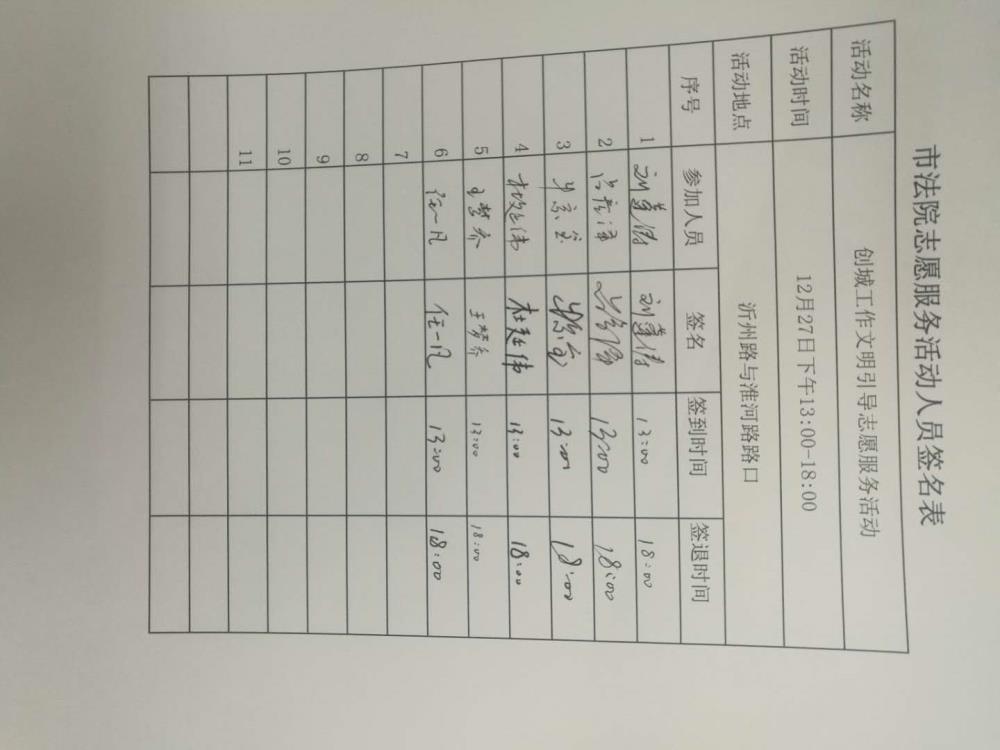 市法院志愿服务活动人员签名表
活动名称 创城工作文明引导志愿服务活动
活动时间 12月27日下午13:00-18:00
活动地点 沂州路与淮河路路口
序号 参加人员 签名 签到时间 签退时间
1 13:00 18:00
2 13:00 18:00
3 13:00 18:00
4 13:00 18:00
5 王梦乔 王梦乔 13:00 18:00
6 任一凡 任一凡 13:00 18:00
7
8
9
10
11